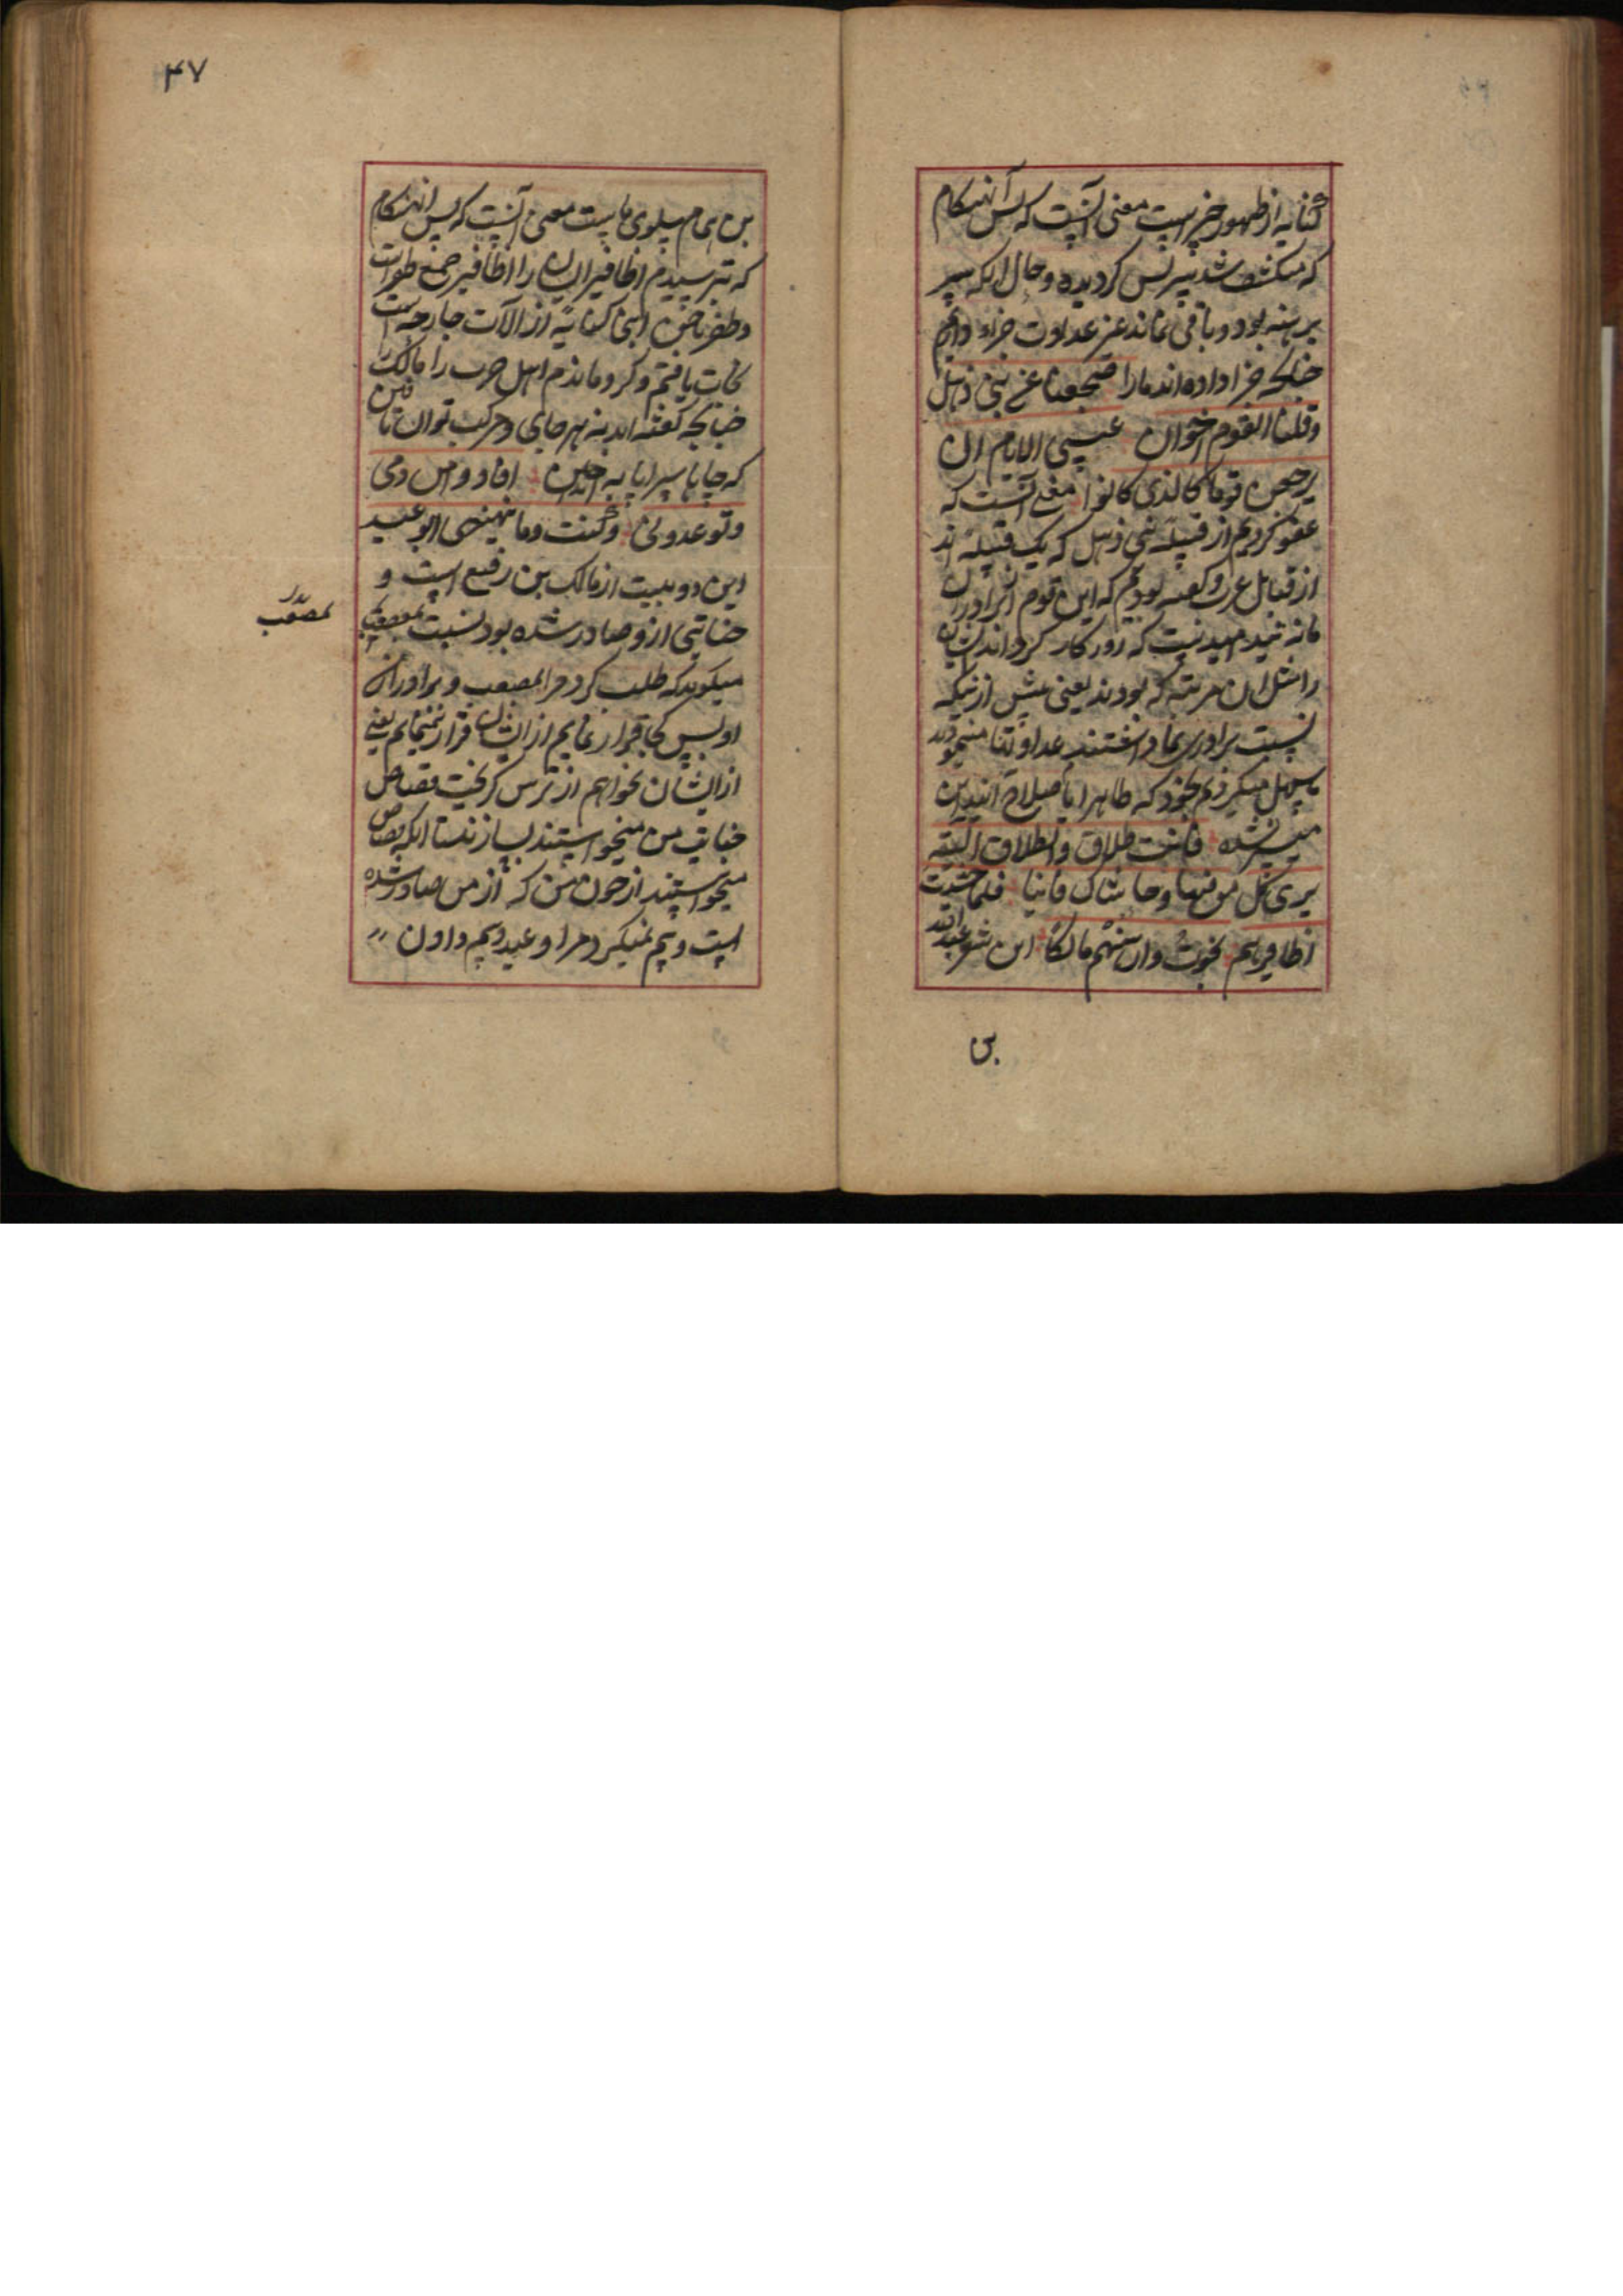 کنایه از ظهور خیر است معنی آنست که پس آنهنکام
که منکشف شد پس کردیده و حال انکه سپر
برهنه بود و باقی نماند غیر عداوت جزاء دادیم
چنانکه جزا داده‌اند مارا صفحنا عن بنی ذهل
وقلنا القوم اخوان عسی الایام ان
یرجعن قوما کالذی کانوا معنی آنست که
عفو کردیم از قبیله بنی ذهل که یک قبیله اند
از قبایل عرب و کفته بودیم که این قوم برادران
مانند امید نیست که روزکار کرداند ایشان
را مثل ان مرتبه که بودند یعنی پیش ازینکه
نسبت برادری بما داشتند عداوتنا مینمودند
ما سهل میکرفتیم بخود که ظاهرا باصلاح آیند این
میسر نشده فانت طلاق والطلاق الیة
یری کل من فیها وحاشاک فانیا فلما خشیت
اظافیرهم نجوت وارهنتهم مالکا این شعر عبدالله
بن
۴۷
بن همام سلولی ماست معنی آنست که پس انهنکام
که ترسیدم اظافیر ایشان را اظافیر جمع ظفر است
وظفر ناخن اینجا کنایه از آلات جارحه است
نجات یافتم و کرو ماندم اهل حرب را مالک
چنانچه کفته اند نه هر جای مرکب توان تاختن
که جاها سپر باید انداختن افاد وامن دمی
وتوعدونی وکنت وما ینهنهنی الوعید
این دو بیت از مالک بن رفیع است و
جنایتی ازو صادر شده بود نسبت بمصعب
میکوید که طلب کرد مرا مصعب و برادران
او پس کجا قرار نمایم از ایشان قرار نمینمایم یعنی
از ایشان نخواهم از ترس کریخت قصاص
جنایت من میخواستند بسازند تا انکه قصاص
میخواستند از خون من که از من صادر شده
است و بیم نمیکرد مرا وعید و بیم دادن
لمصعب